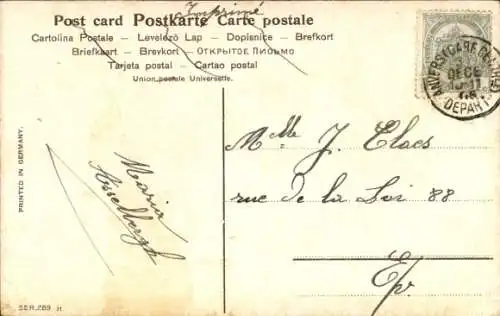 Imprimé
Post card Postkarte Carte postale
Cartolina Postale – Levelező Lap – Dopisnice – Brefkort
Briefkaart – Brevkort – ОТКРЫТОЕ ПИСЬМО
Tarjeta postal – Cartao postal
Union postale Universelle.
DECE
DEPART
Mlle J. Claes
rue de la Loi 88
E/v.
Maria
Asselbergh
PRINTED IN GERMANY.
SER. 289